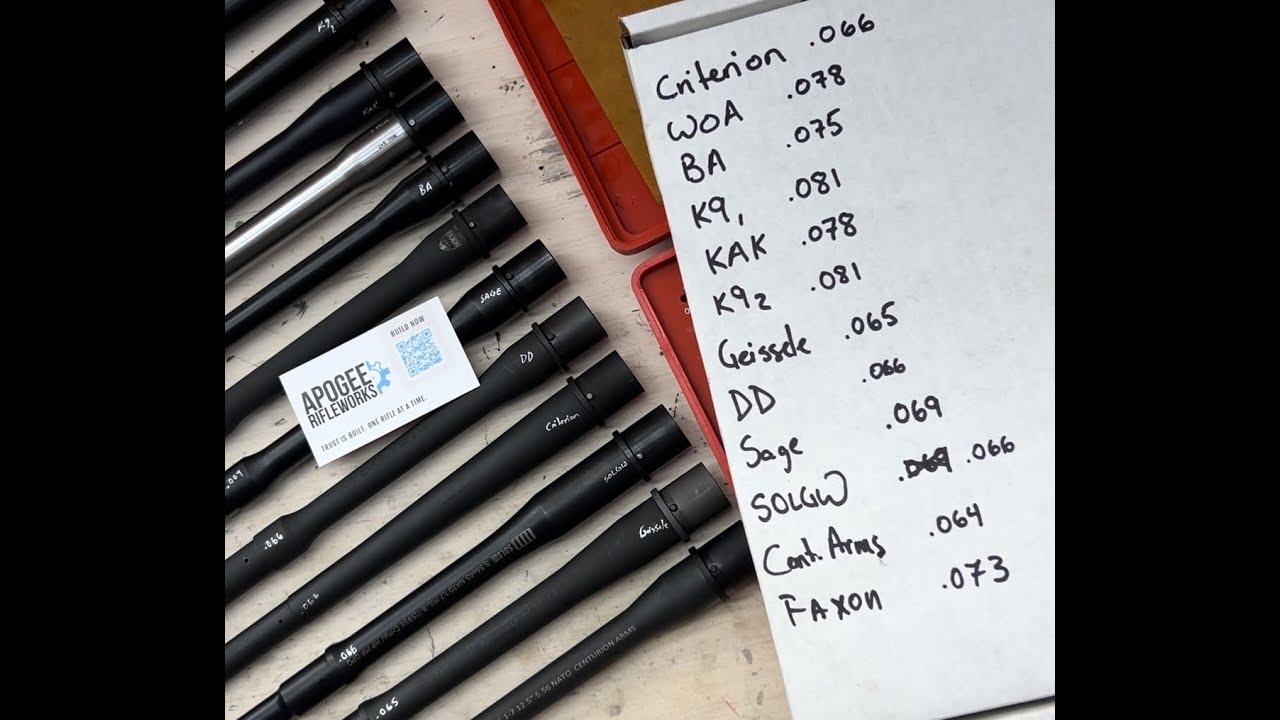 Criterion .066
WOA .078
BA .075
K9, .081
KAK .078
K92 .081
Geissele .065
DD .066
Sage .069
SOLGW .069 .066
Cent. Arms .064
FAXON .073
K92
KAK
BA
SAGE
DD
Criterion
SOLGW
Geissele
BUILD NOW
APOGEE
RIFLEWORKS
TRUST IS BUILT. ONE RIFLE AT A TIME.
.069
.066
.066
.066
.065
SOLGW 5.56x45 NATO 1:7
1:7 12.5" 5.56 NATO CENTURION ARMS